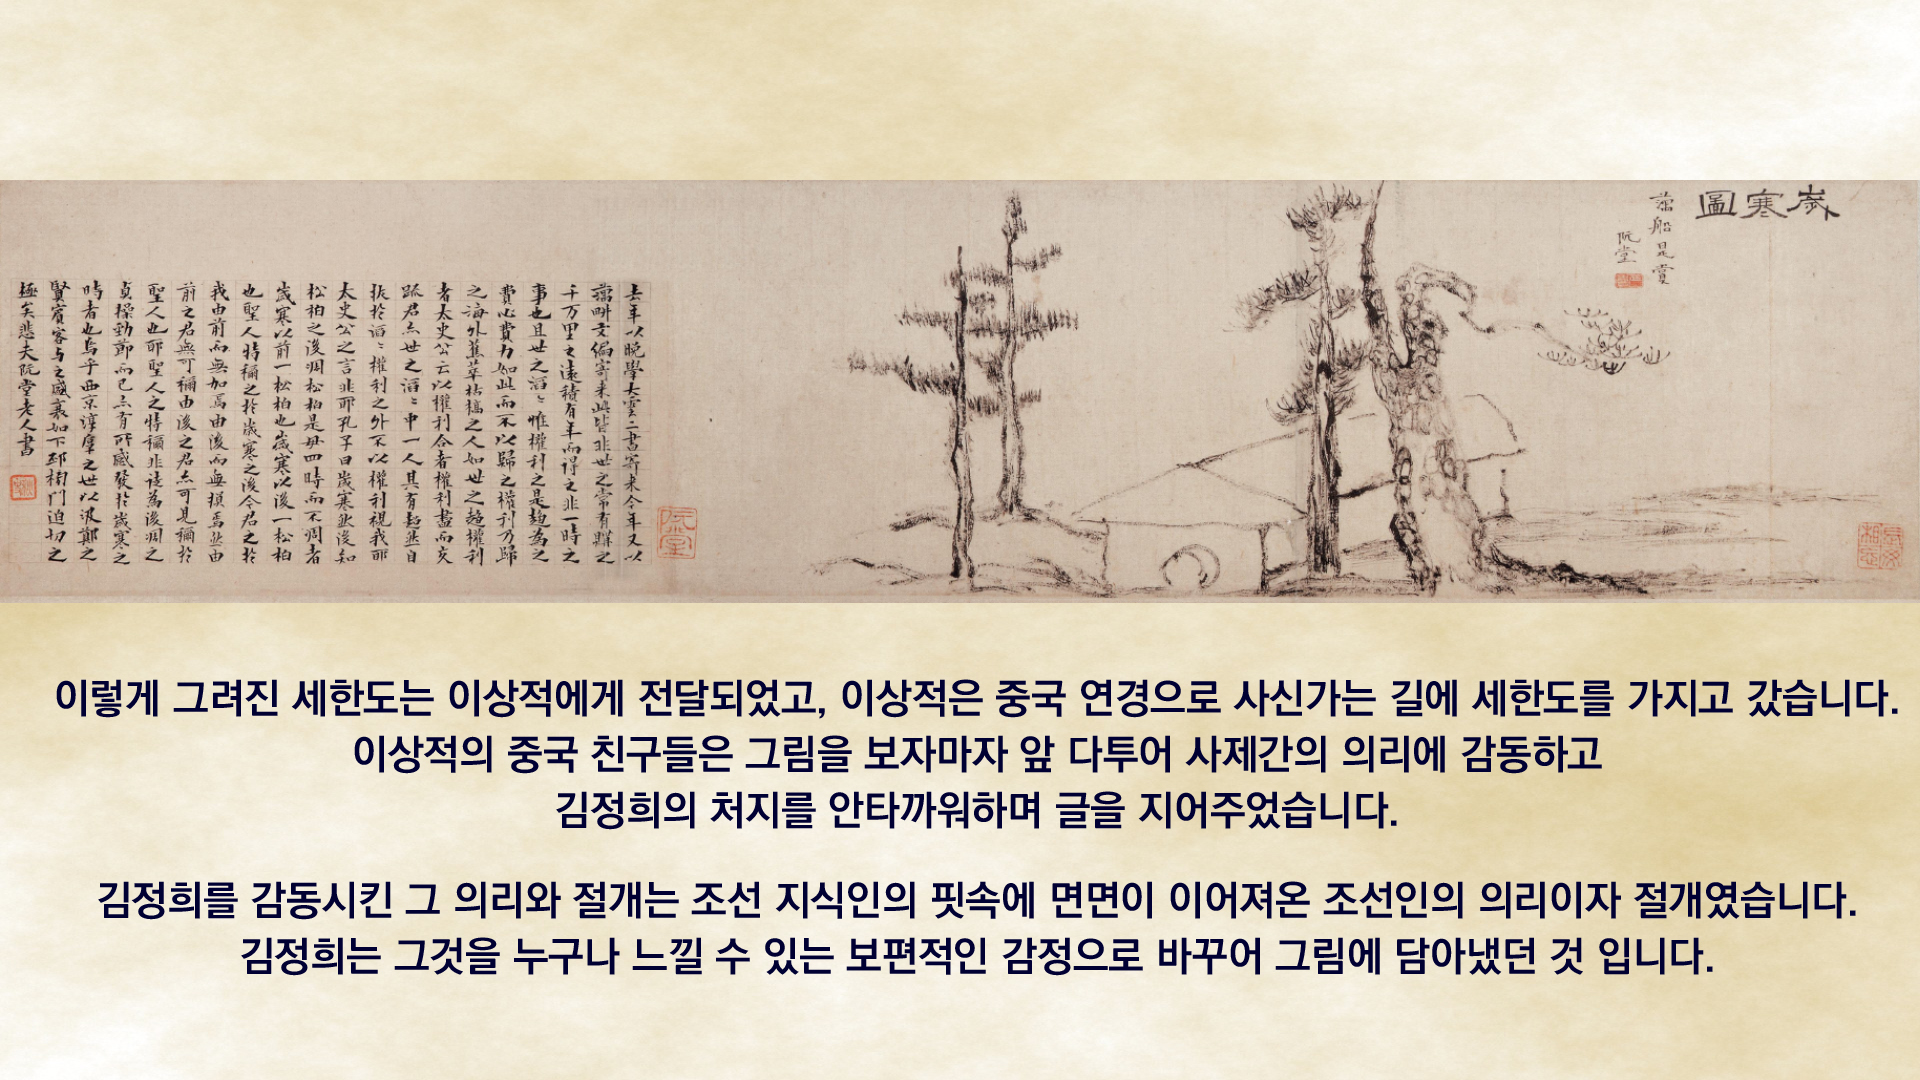 歲寒圖
藕船是賞
阮堂
長毋相忘
阮堂
去年以晚學大雲二書寄來今年又以
藕畊文編寄來此皆非世之常有購之
千万里之遠積有年而得之非一時之
事也且世之滔〻惟權利之是趨為之
費心費力如此而不以歸之權利乃歸
之海外蕉萃枯槁之人如世之趨權利
者太史公云以權利合者權利盡而交
踈君亦世之滔〻中一人其有超然自
拔於滔〻權利之外不以權利視我耶
太史公之言非耶孔子曰歲寒然後知
松柏之後凋松柏是毋四時而不凋者
歲寒以前一松柏也歲寒以後一松柏
也聖人特稱之於歲寒之後今君之於
我由前而無加焉由後而無損焉然由
前之君無可稱由後之君亦可見稱於
聖人也耶聖人之特稱非徒為後凋之
貞操勁節而已亦有所感發於歲寒之
時者也烏乎西京淳厚之世以汲鄭之
賢賓客与之盛衰如下邳榜門迫切之
極矣悲夫阮堂老人書
이렇게 그려진 세한도는 이상적에게 전달되었고, 이상적은 중국 연경으로 사신가는 길에 세한도를 가지고 갔습니다.
이상적의 중국 친구들은 그림을 보자마자 앞 다투어 사제간의 의리에 감동하고
김정희의 처지를 안타까워하며 글을 지어주었습니다.
김정희를 감동시킨 그 의리와 절개는 조선 지식인의 핏속에 면면이 이어져온 조선인의 의리이자 절개였습니다.
김정희는 그것을 누구나 느낄 수 있는 보편적인 감정으로 바꾸어 그림에 담아냈던 것 입니다.